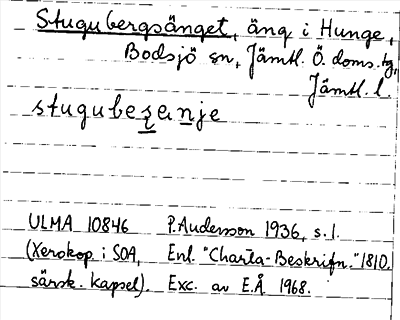 Stugubergsänget, äng i Hunge,
Bodsjö sn, Jämtl. Ö doms.tg,
Jämtl. l.
stugubeṣenje
ULMA 10846 P. Andersson 1936, s. 1.
(Xerokop. i SOA, Enl. "Charta-Beskrifn." 1810.
särsk. kapsel). Exc. av E.Å 1968.